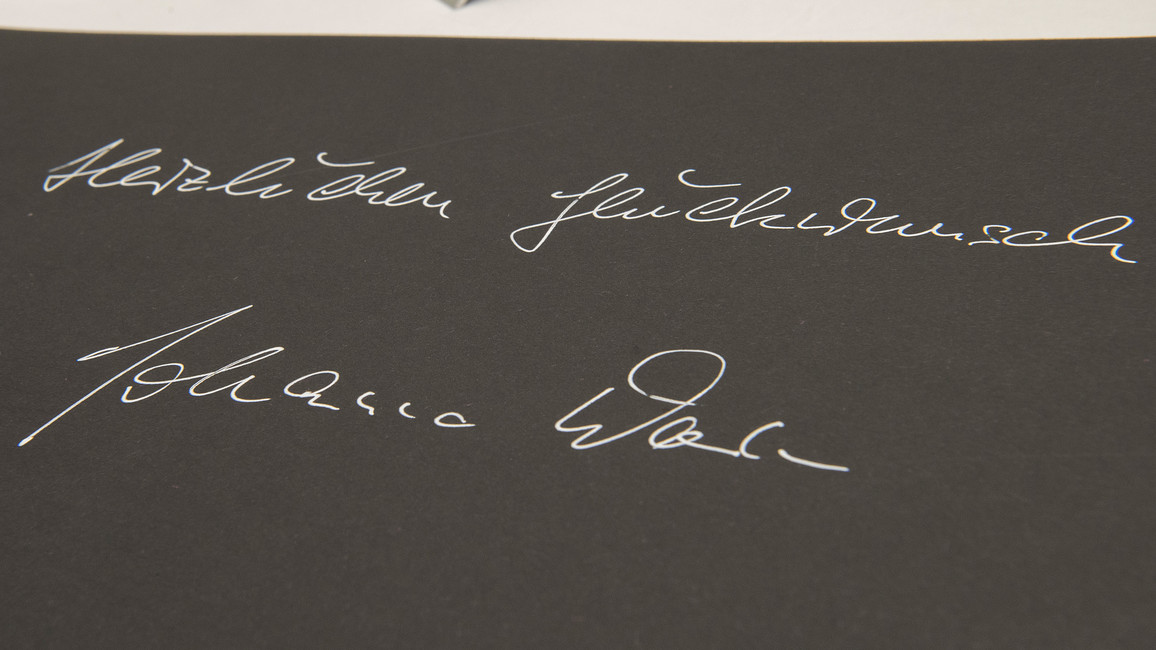 Herzlichen Glückwunsch
Johanna